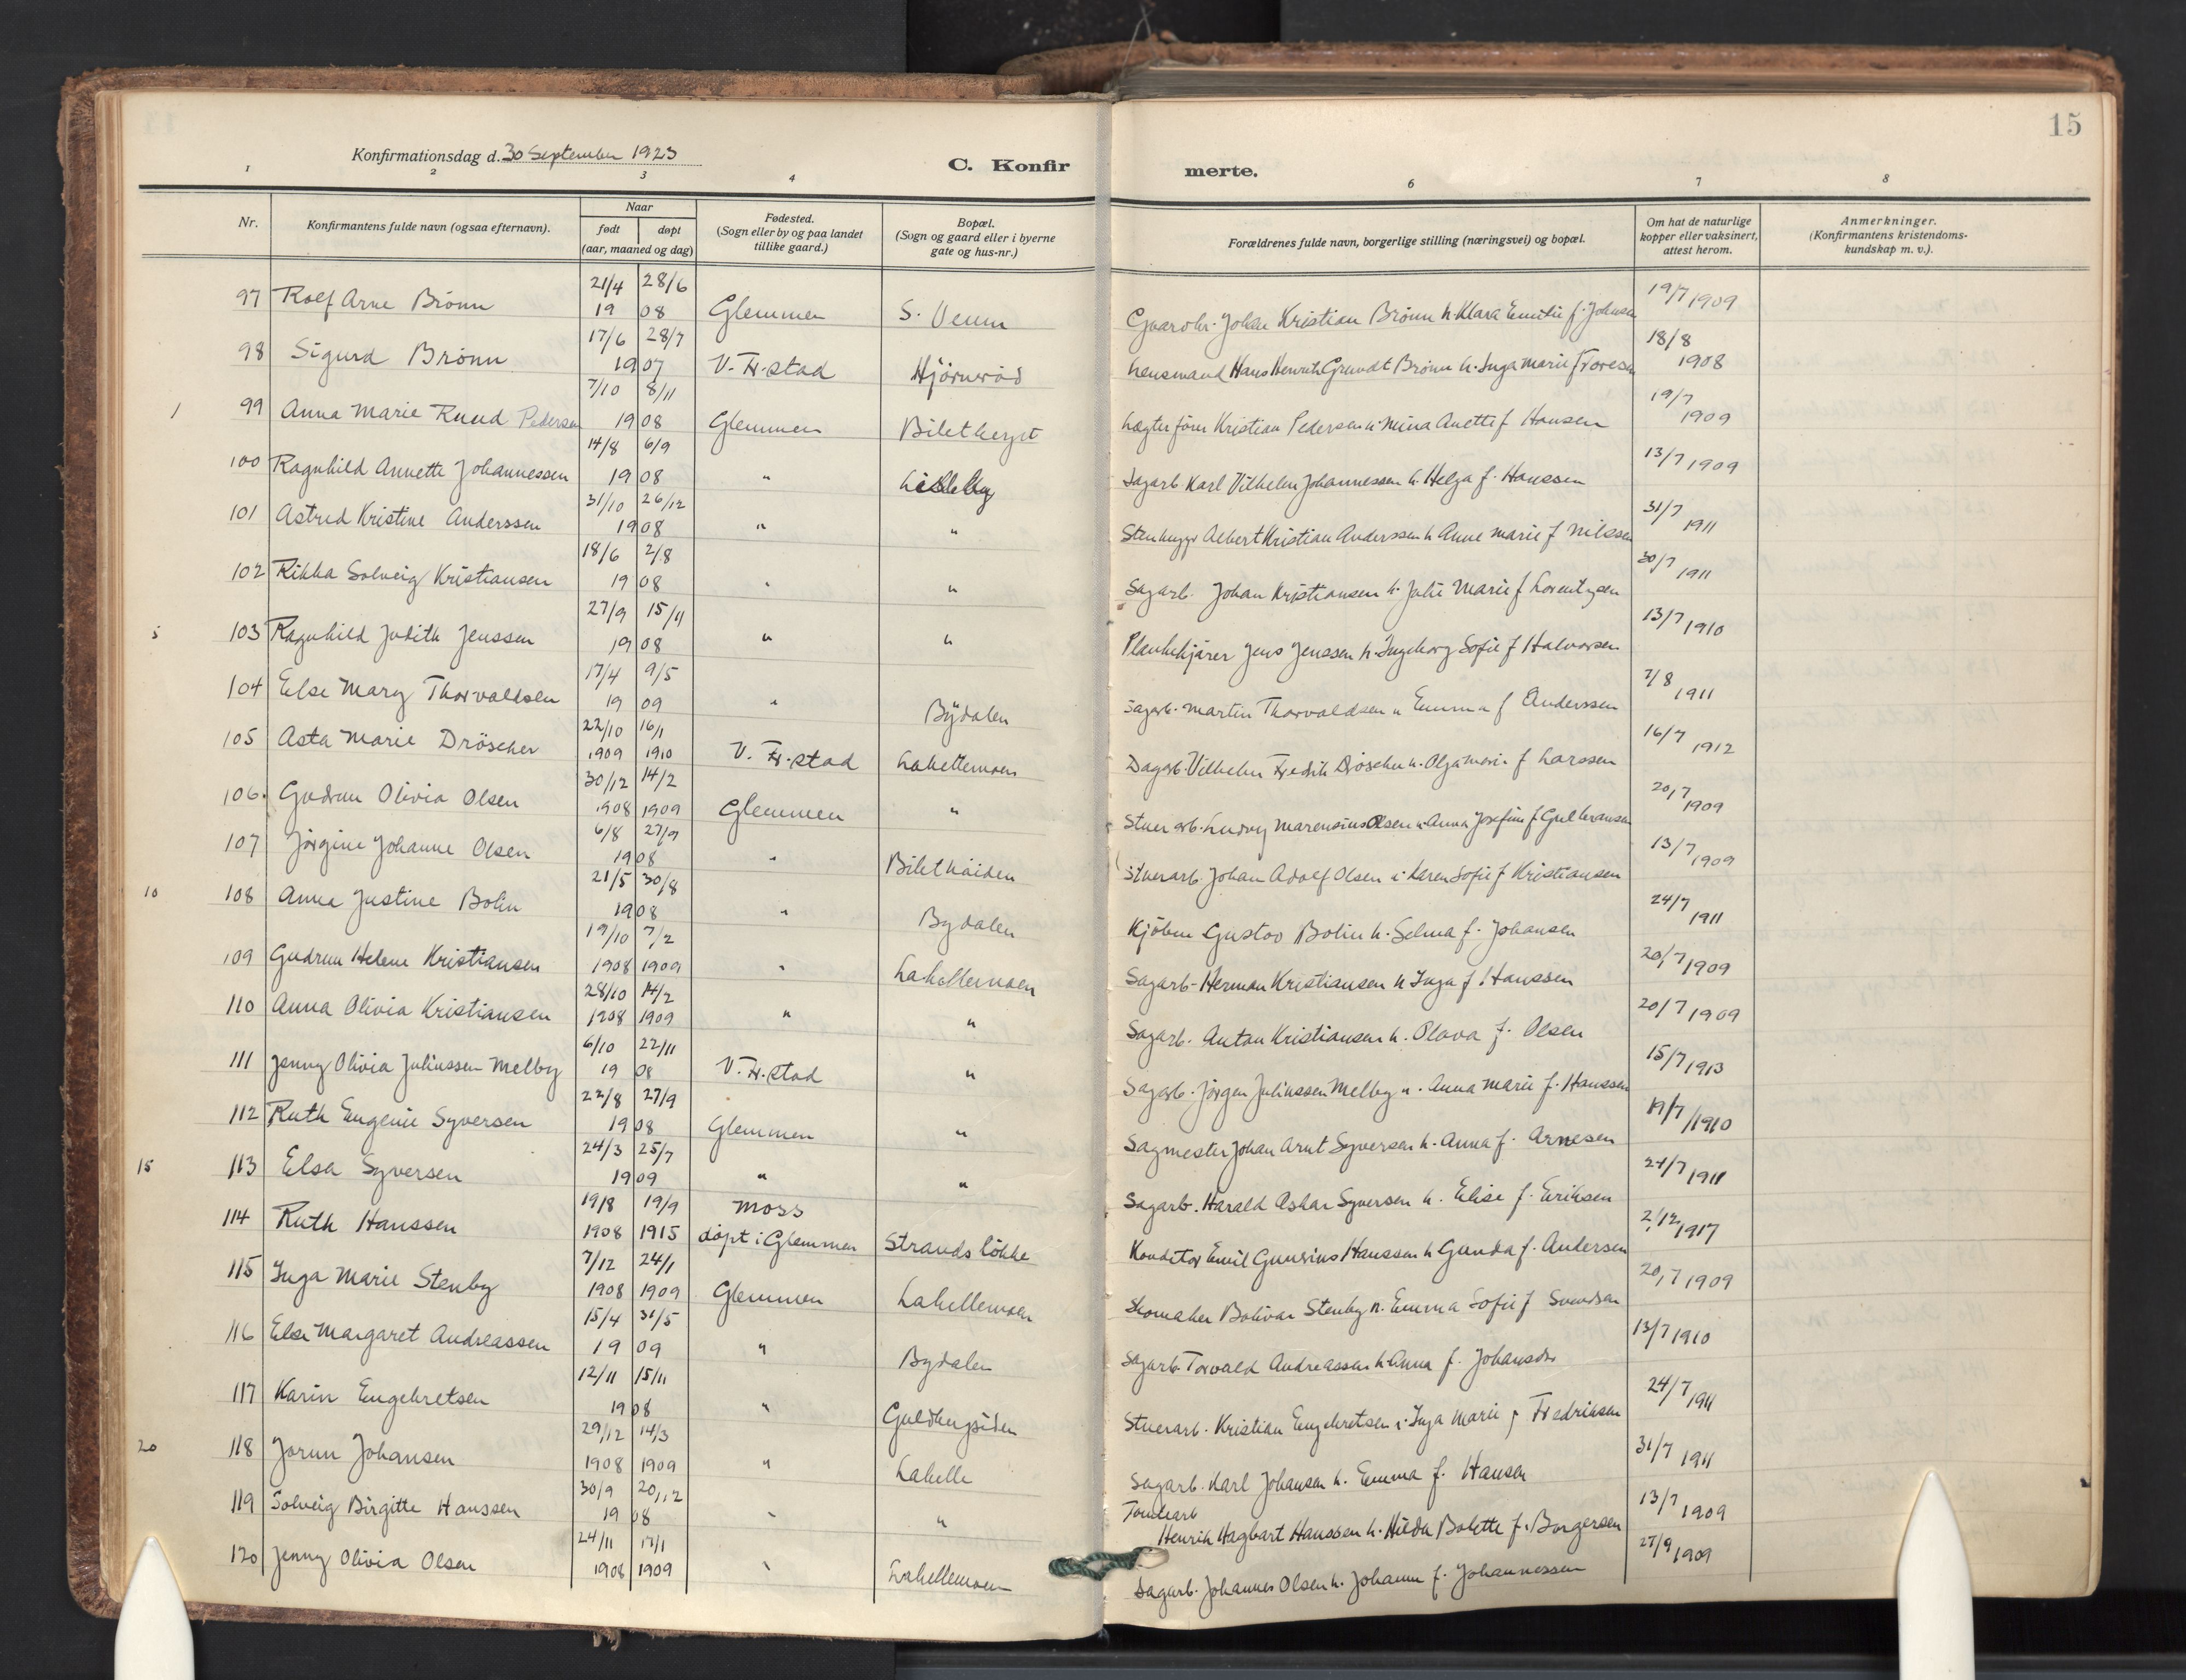 15
Konfirmationsdag d. 30 September 1923
C. Konfirmerte.
1 2 3 4 6 7 8
Nr. Konfirmantens fulde navn (ogsaa efternavn). Naar født døpt (aar, maaned og dag) Fødested. (Sogn eller by og paa landet tillike gaard.) Bopæl. (Sogn og gaard eller i byerne gate og hus-nr.) Forældrenes fulde navn, borgerlige stilling (næringsvei) og bopæl. Om hat de naturlige kopper eller vaksinert, attest herom. Anmerkninger. (Konfirmantens kristendomskundskap m. v.).
97 Rolf Arne Brönn 21/4 28/6 1908 Glemmen S. Veum Johan Kristian Brönn h. Klara Emilie f. Johansen 19/7 1909
98 Sigurd Brönn 17/6 28/7 1907 V. Fr.stad Hjörneröd Lensmand Hans Henrik Grundt Brönn h. Inga Marie 18/8 1908
1 99 Anna Marie Ruud Pedersen 7/10 8/11 1908 Glemmen Biletberget Lægterförer Kristian Pedersen h. Mina Anette f Hansen 19/7 1909
100 Ragnhild Annette Johannessen 14/8 6/9 1908 " Lisleby Sagarb. Karl Vilhelm Johannessen h. Helga f. Hanssen 13/7 1909
101 Astrid Kristine Anderssen 31/10 26/12 1908 " " Stenhugger Albert Kristian Anderssen h Anne Marie f Nilssen 31/7 1911
102 Rikka Solveig Kristiansen 18/6 2/8 1908 " " Sagarb. Johan Kristiansen h. Julie Marie f Lorentzen 30/7 1911
5 103 Ragnhild Judith Jenssen 27/9 15/11 1908 " " Plankekjörer Jens Jenssen h. Ingeborg Sofie f Halvorsen 13/7 1910
104 Else Mary Thorvaldsen 17/4 9/5 1909 " Bydalen Sagarb. Martin Thorvaldsen h Emma f Anderssen 7/8 1911
105 Asta Marie Dröscher 22/10 16/1 1909 1910 V. Fr.stad Lahellemoen Dagarb. Vilhelm Fredrik Dröscher h. Olga Marie f Larssen 16/7 1912
106. Gudrun Olivia Olsen 30/12 14/2 1908 1909 Glemmen " Stuerarb. Ludvig Marensius Olsen h. Anna Josefine f Gulbransen 20/7 1909
107 Jörgine Johanne Olsen 6/8 27/9 1908 " Bilethöiden Stuerarb. Johan Adolf Olsen h. Karen Sofie f Kristiansen 13/7 1909
10 108 Anna Justine Bolin 21/5 30/8 1908 " Bydalen Kjöbm Gustav Bolin h. Selma f. Johansen 24/7 1911
109 Gudrun Helene Kristiansen 19/10 7/2 1908 1909 " Lahellemoen Sagarb. Herman Kristiansen h Inga f Hanssen 20/7 1909
110 Anna Olivia Kristiansen 28/10 14/2 1908 1909 " " Sagarb. Anton Kristiansen h. Olava f. Olsen 20/7 1909
111 Jenny Olivia Juliussen Melby 6/10 22/11 1908 V. Fr.stad " Sagarb. Jörgen Juliussen Melby h. Anna Marie f. Hanssen 15/7 1913
112 Ruth Eugenie Syversen 22/8 27/9 1908 Glemmen " Sagmester Johan Arnt Syversen h. Anna f. Arnesen 19/7 1910
15 113 Elsa Syversen 24/3 25/7 1909 " " Sagarb. Harald Oskar Syversen h. Elise f. Eriksen 24/7 1911
114 Ruth Hanssen 19/8 19/9 1908 1915 Moss döpt i Glemmen Strandslökke Konditor Emil Hanssen h Gunda f. Andersen 2/12 1917
115 Inga Marie Stenby 7/12 24/1 1908 1909 Glemmen Lahellemoen Skomaker Bolivar Stenby h. Emma Sofie f Svendsen 20/7 1909
116 Else Margaret Andreassen 15/4 31/5 1909 " Bydalen Sagarb. Torvald Andreassen h. Anna f. Johansdr 13/7 1910
117 Karin Engebretsen 12/11 15/11 1908 " Guldbergsiden Stuerarb. Kristian Engebretsen h. Inga Marie f Fredriksen 24/7 1911
20 118 Jorun Johansen 29/12 14/3 1908 1909 " Lahelle Sagarb. Karl Johansen h. Emma f. Hansen 31/7 1911
119 Solveig Birgitte Hanssen 30/9 20/12 1908 " " Tomtearb Henrik Hagbart Hanssen h. Hilda Bolette f. Borgersen 13/7 1909
120 Jenny Olivia Olsen 24/11 17/1 1908 1909 " Lahellemoen Sagarb. Johannes Olsen h. Johanne f. Johannessen 27/9 1909